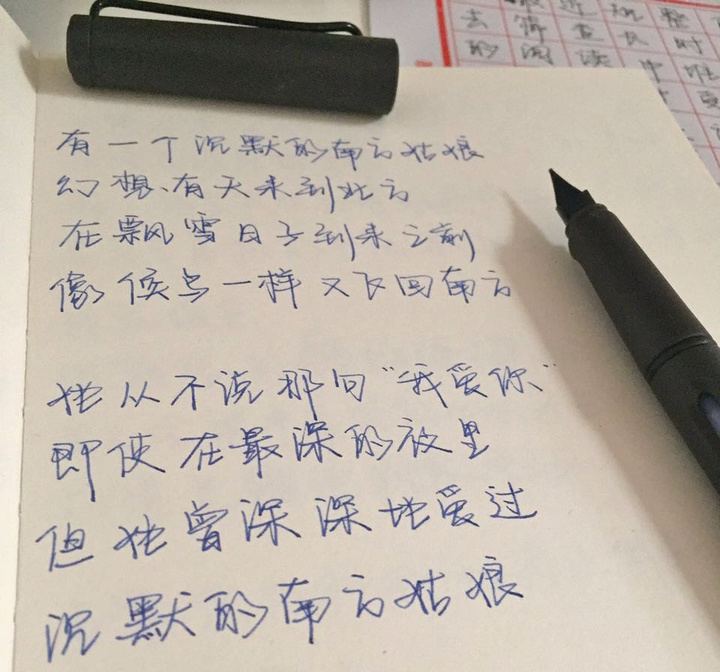 的阅读中
有一个沉默的南方姑娘
幻想有天来到北方
在飘雪日子到来之前
像候鸟一样又飞回南方
她从不说那句“我爱你”
即使在最深的夜里
但她曾深深地爱过
沉默的南方姑娘